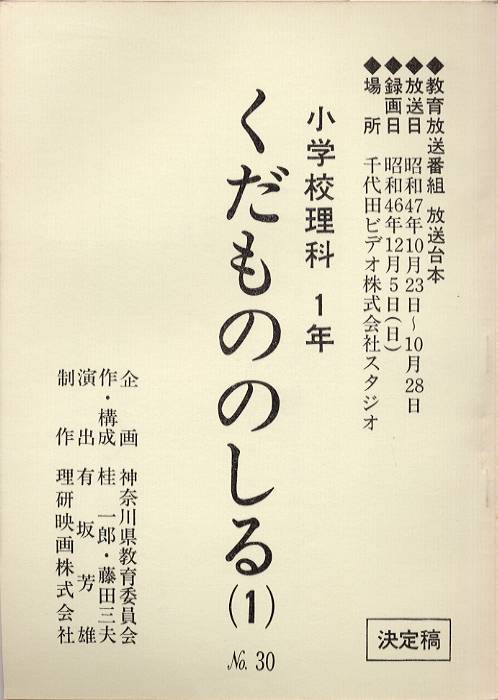 ◆教育放送番組 放送台本
◆放送日 昭和47年10月23日～10月28日
◆録画日 昭和46年12月5日(日)
◆場 所 千代田ビデオ株式会社スタジオ
小学校理科 1年
くだもののしる(1)
No. 30
企 画 神奈川県教育委員会
作・構成 桂 一郎・藤田三夫
演 出 有 坂 芳 雄
制 作 理研映画株式会社
決定稿